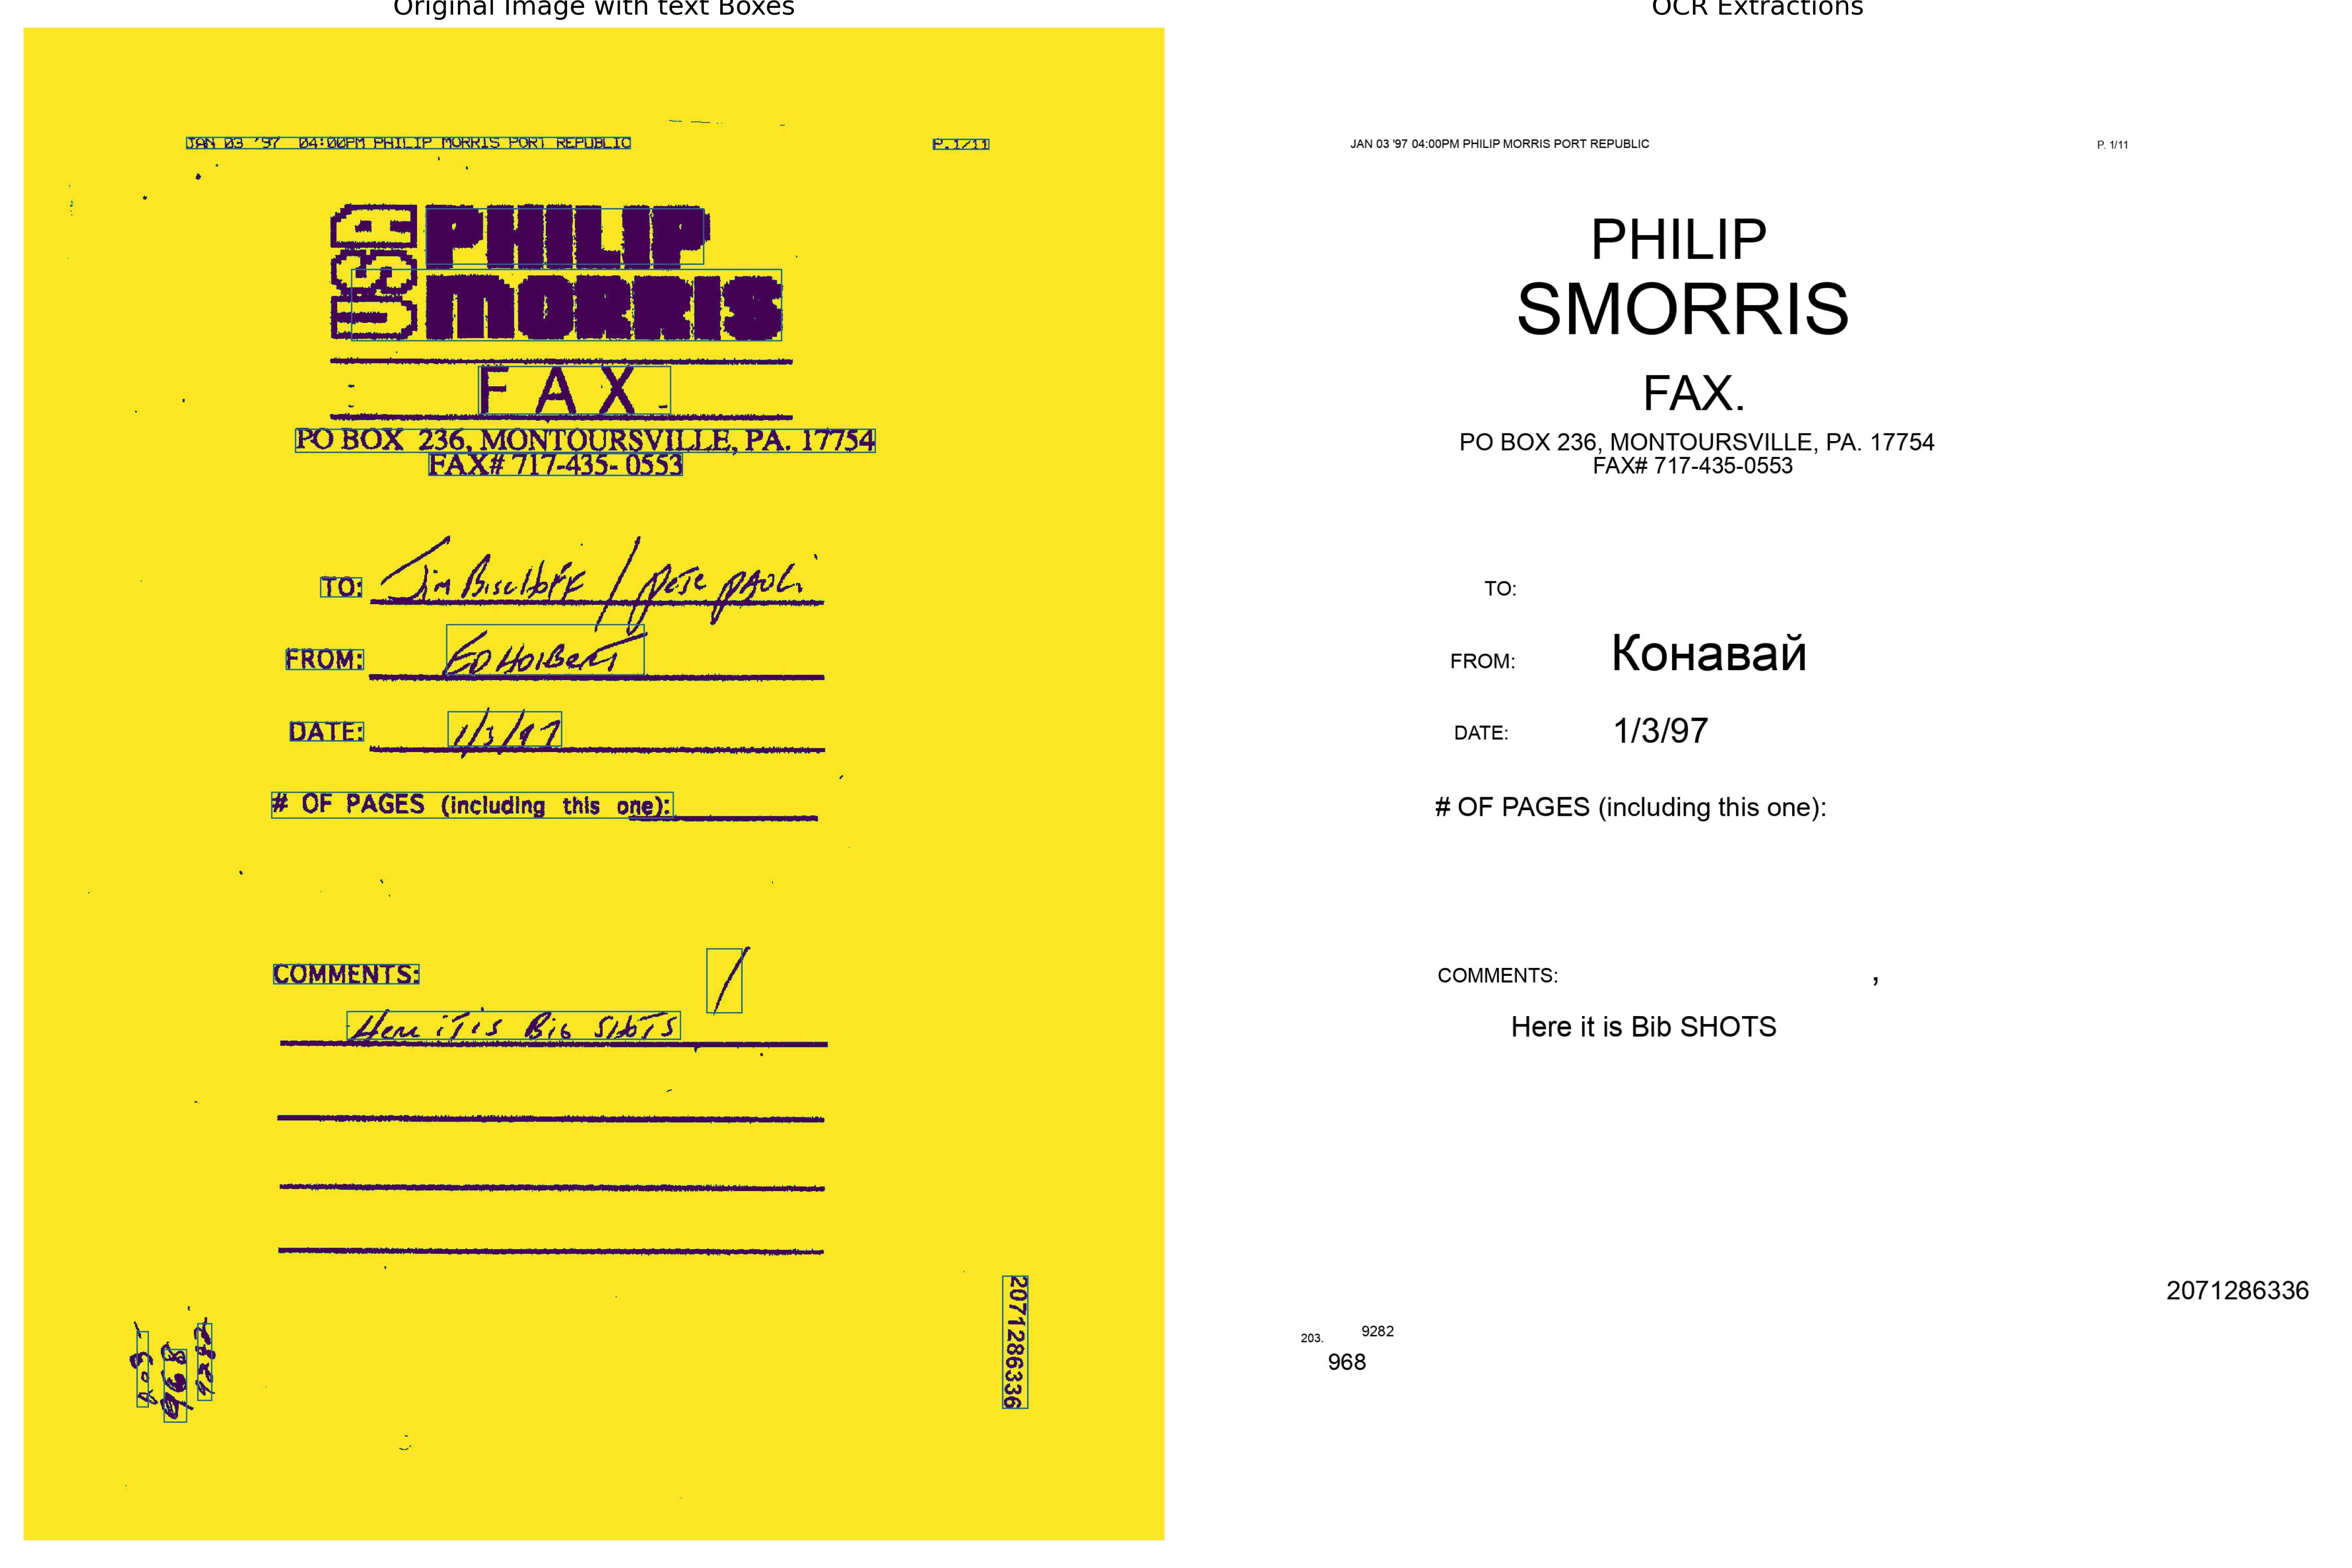 Original Image with text Boxes
JAN 03 '97 04:00PM PHILIP MORRIS PORT REPUBLIC P.1/11
USA
PHILIP
MORRIS
FAX
PO BOX 236, MONTOURSVILLE, PA. 17754
FAX# 717-435- 0553
TO: Jim Bischoff / Pete Paoli
FROM: ED HOLBERT
DATE: 1/3/97
# OF PAGES (including this one):
COMMENTS:
Here iT is Big SHOTS
2071286336
968
9282
OCR Extractions
JAN 03 '97 04:00PM PHILIP MORRIS PORT REPUBLIC P. 1/11
PHILIP
SMORRIS
FAX.
PO BOX 236, MONTOURSVILLE, PA. 17754
FAX# 717-435-0553
TO:
FROM: Конавай
DATE: 1/3/97
# OF PAGES (including this one):
COMMENTS: ,
Here it is Bib SHOTS
2071286336
203. 9282
968